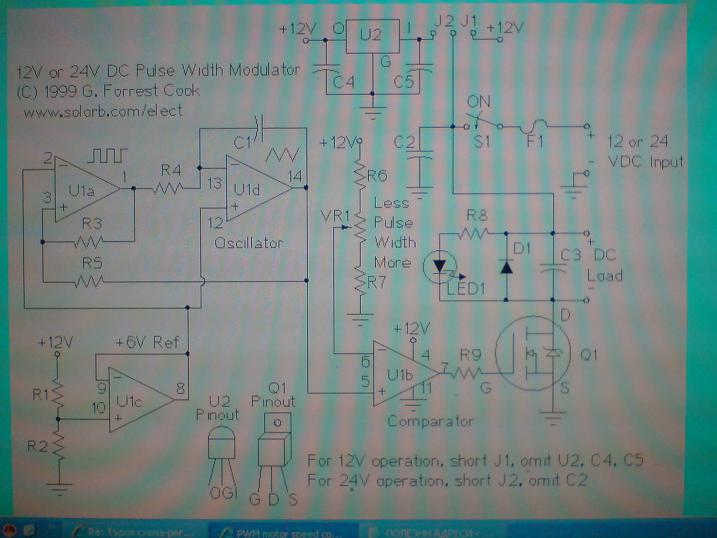 +12V O U2 I J2 J1 +12V
G
C4 C5
12V or 24V DC Pulse Width Modulator
(C) 1999 G. Forrest Cook
www.solorb.com/elect
ON
S1 F1
+ 12 or 24
- VDC Input
C1
C2
+12V
2 U1a 1 R4 13 U1d 14
3
12
Oscillator
R3
R5
R6
VR1
Less
Pulse
Width
More
R7
R8
LED1
D1
C3
+ DC
Load
-
D
Q1
G S
+12V
+6V Ref
R1
R2
9 U1c 8
10
6 U1b 4 7 R9
5 11
+12V
Comparator
U2
Pinout
OGI
Q1
Pinout
G D S
For 12V operation, short J1, omit U2, C4, C5
For 24V operation, short J2, omit C2
PWM motor speed co...